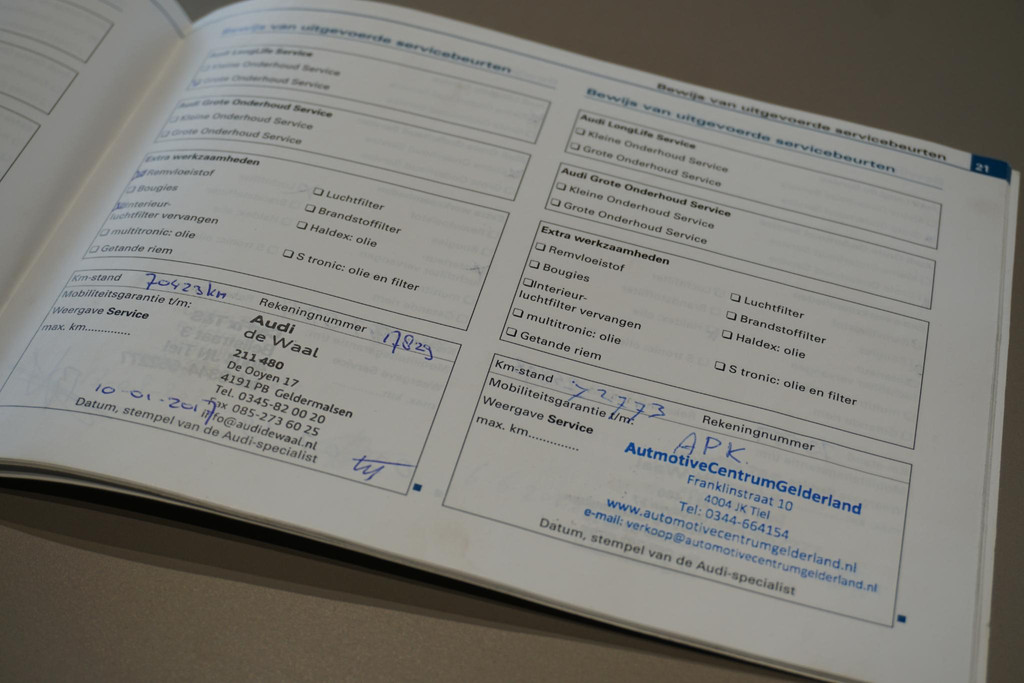 Bewijs van uitgevoerde servicebeurten
Audi LongLife Service
Kleine Onderhoud Service
Grote Onderhoud Service
Audi Grote Onderhoud Service
Kleine Onderhoud Service
Grote Onderhoud Service
Extra werkzaamheden
Remvloeistof
Bougies
Interieur-
luchtfilter vervangen
multitronic: olie
Getande riem
Luchtfilter
Brandstoffilter
Haldex: olie
S tronic: olie en filter
Km-stand 70423 km Rekeningnummer 17829
Mobiliteitsgarantie t/m:
Weergave Service
max. km..............
Audi
de Waal
211 480
De Ooyen 17
4191 PB Geldermalsen
Tel. 0345-82 00 20
Fax 085-273 60 25
info@audidewaal.nl
10-01-2017
Datum, stempel van de Audi-specialist
Bewijs van uitgevoerde servicebeurten 21
Bewijs van uitgevoerde servicebeurten
Audi LongLife Service
Kleine Onderhoud Service
Grote Onderhoud Service
Audi Grote Onderhoud Service
Kleine Onderhoud Service
Grote Onderhoud Service
Extra werkzaamheden
Remvloeistof
Bougies
Interieur-
luchtfilter vervangen
multitronic: olie
Getande riem
Luchtfilter
Brandstoffilter
Haldex: olie
S tronic: olie en filter
Km-stand Rekeningnummer
Mobiliteitsgarantie t/m:
Weergave Service
max. km..............
APK
AutmotiveCentrumGelderland
Franklinstraat 10
4004 JK Tiel
Tel: 0344-664154
www.automotivecentrumgelderland.nl
e-mail: verkoop@automotivecentrumgelderland.nl
Datum, stempel van de Audi-specialist